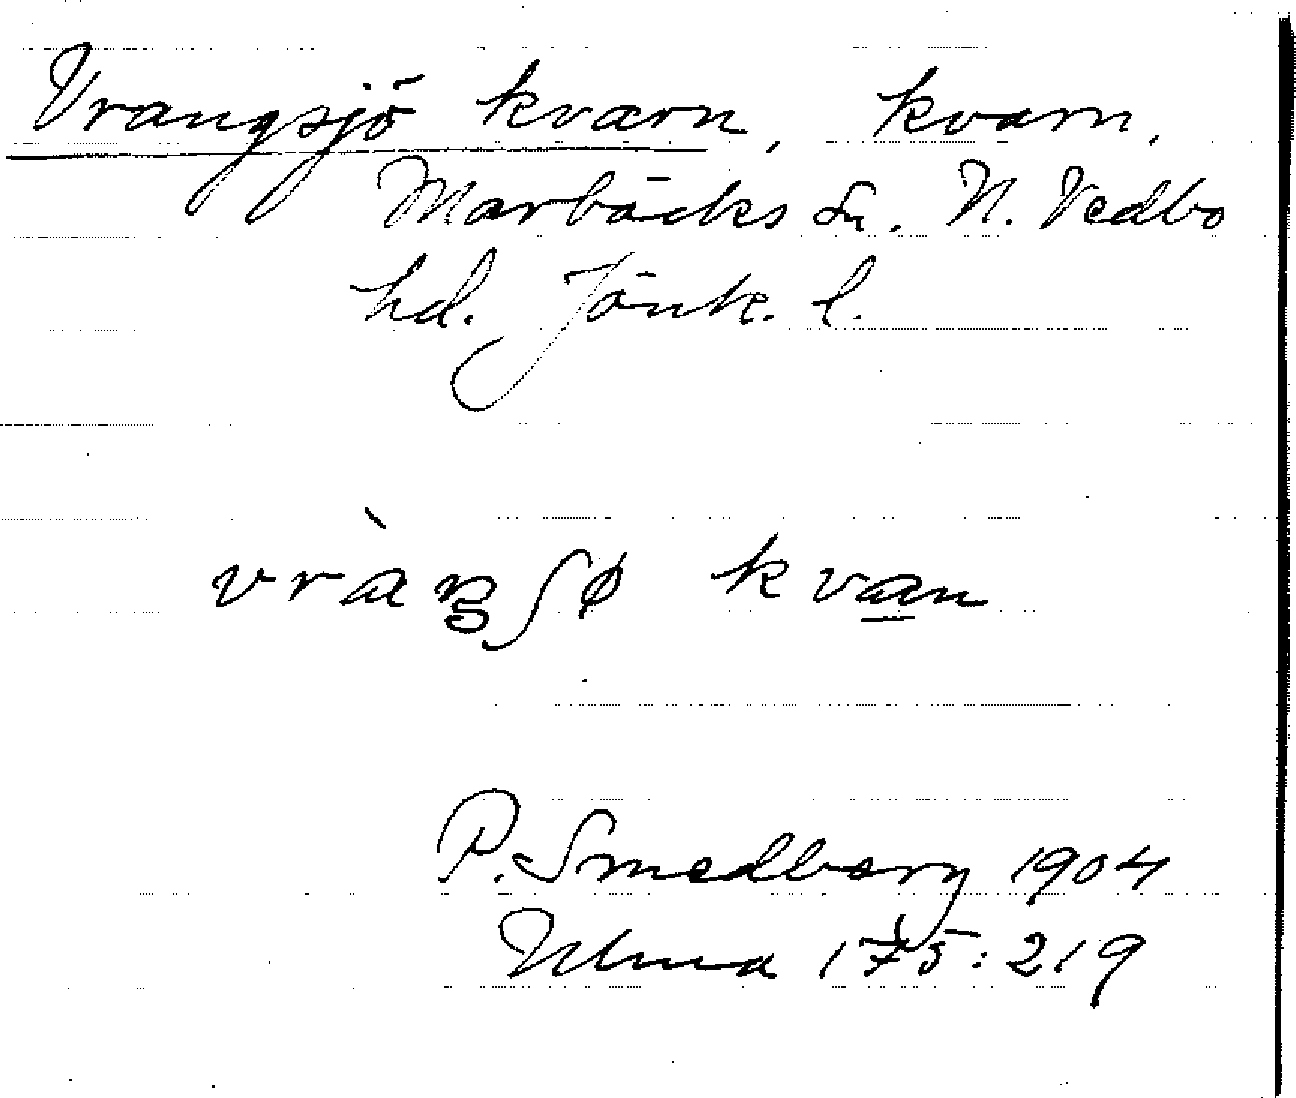 Vrangsjö kvarn, kvarn.
Marbäcks sn. N. Vedbo
hd. Jönk. l.
vràŋʃø kvan
P. Smedberg 1904
Ulma 175:219